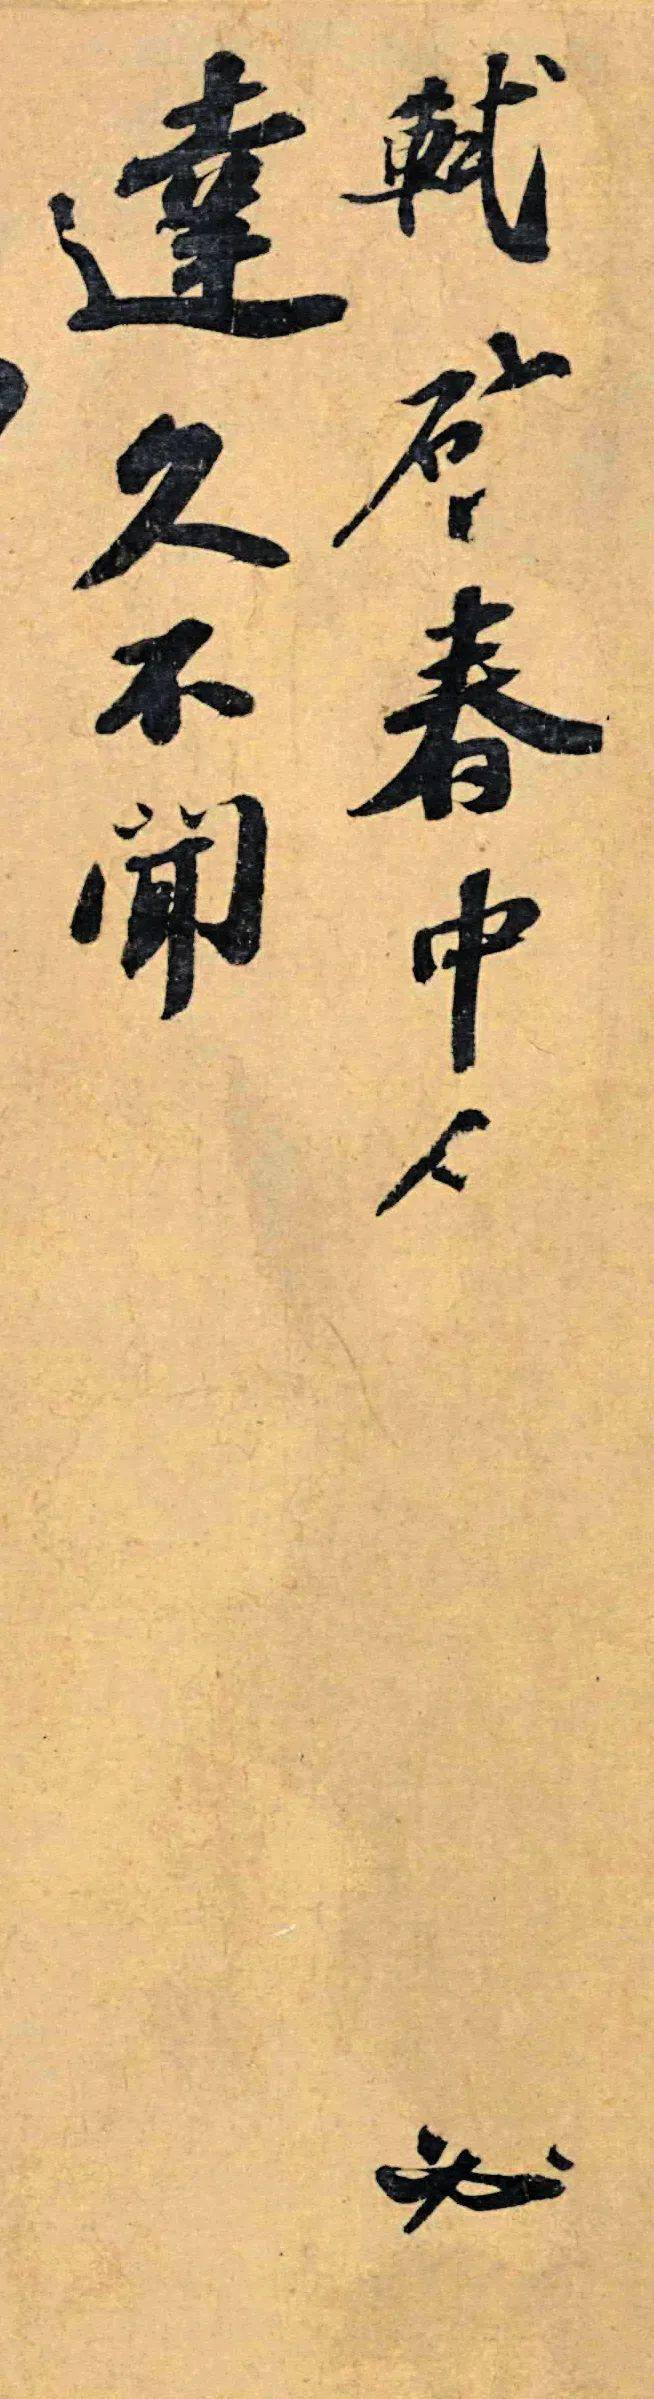 軾啓春中人必
達久不聞